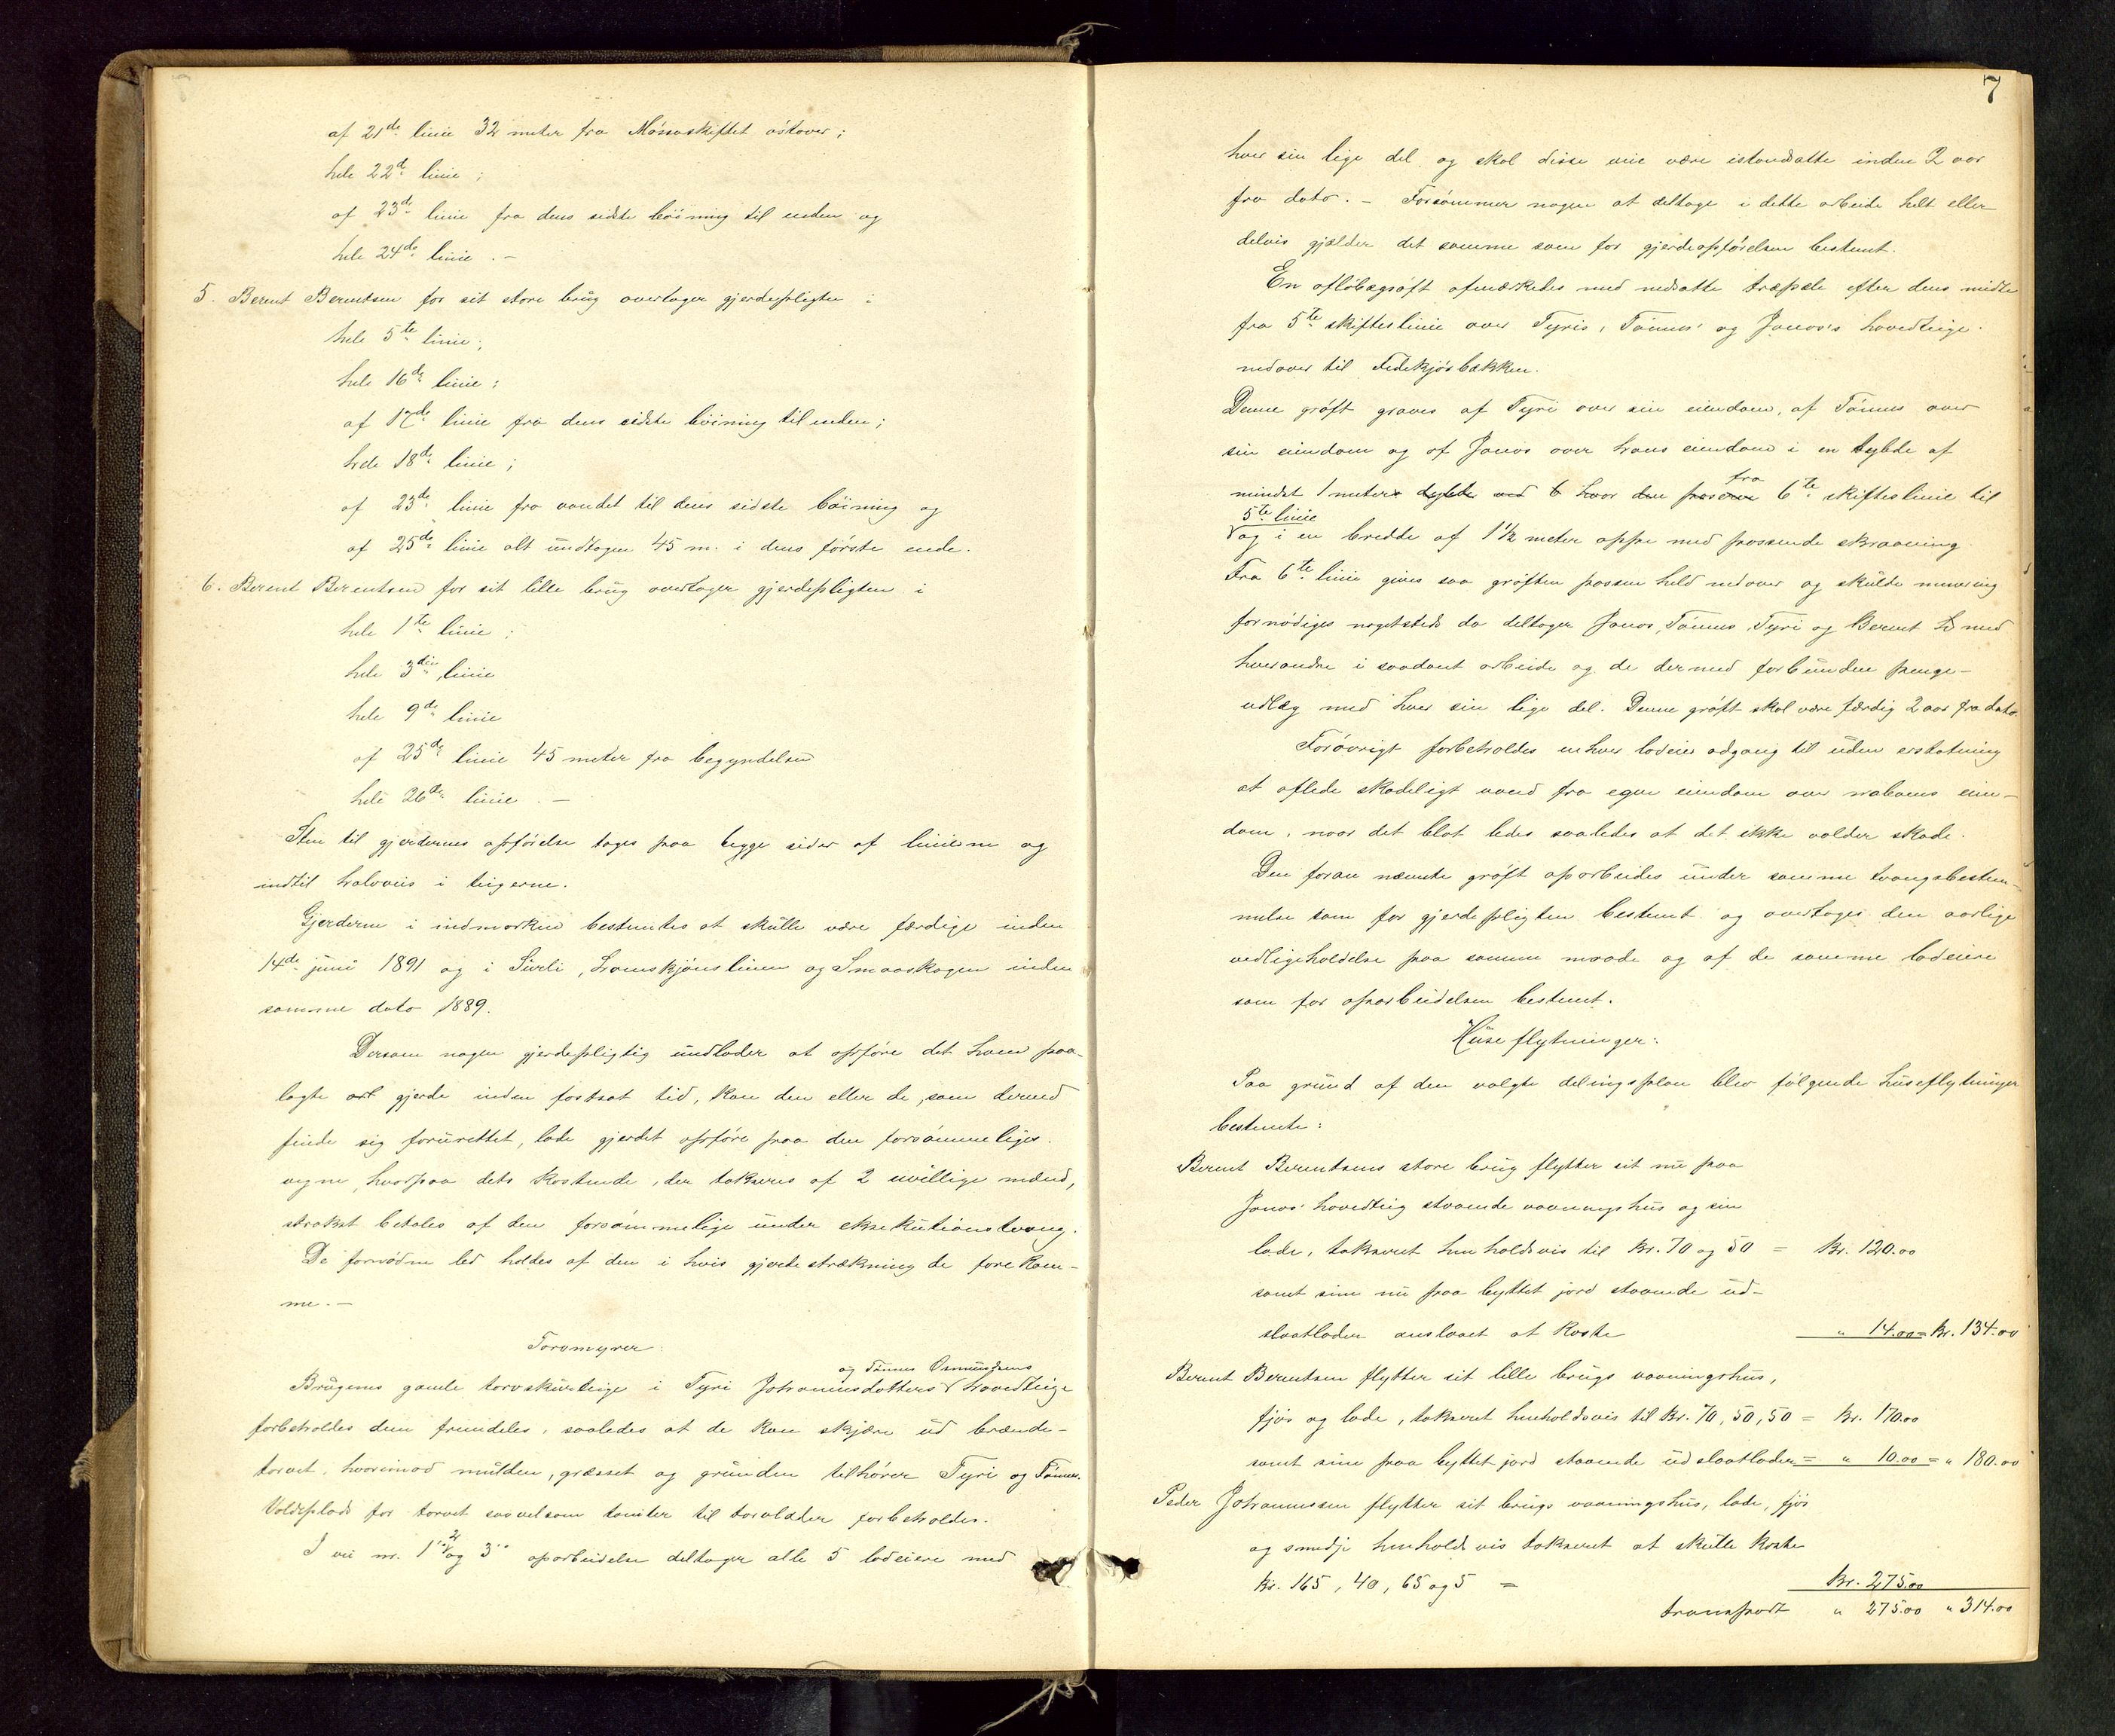 af 21de linie 32 meter fra Mónaskiftet óstover;
hele 22de linie;
af 23de linie fra dens sidste bóining til enden og
hele 24de linie. -
5. Berent Berentsen for sit store brug overtager gjerdepligten i
hele 5te linie;
hele 16de linie;
af 17de linie fra dens sidste bóining til enden;
hele 18de linie;
af 23de linie fra vandet til dens sidste bóining og
af 25de linie alt undtagen 45 m. i dens fórste ende.
6. Berent Berentsen for sit lille brug overtager gjerdepligten i
hele 1te linie;
hele 3die linie
hele 9de linie
af 25de linie 45 meter fra begyndelsen
hele 26de linie. -
Sten til gjerdernes opfórelse tages paa begge sider af linierne og
indtil halvveis i teigerne.
Gjerderne i indmarken bestemtes at skulle være færdige inden
14de juni 1891 og i Sireli, og Smaaskogen inden
samme dato 1889.
Dersom nogen gjerdepligtig undlader at opfóre det ham paa-
lagte gjerde inden fastsat tid, kan den eller de, som derved
finde sig forurettet, lade gjerdet opfóre paa den forsómmeliges
vegne, hvorpaa dets kostende, der takseres af 2 uvillige mænd,
strakst betales af den forsómmelige under eksekutionstvang.
De fornódne led holdes af den i hvis gjerdestrækning de forekom-
me. -
Torvmyrer:
Brugenes gamle torvskurteige i Tyri Johannesdatters og Tónnes Osmundsens hovedteige
forbeholdes dem fremdeles, saaledes at de kan skjære ud brænde-
torvet, hvorimod mulden, græsset og grunden tilhórer Tyri og Tónnes.
Voldeplads for torvet saavelsom tomter til torvlader forbeholdes.
I vei nr. 1, 2 og 3's oparbeidelse deltager alle 5 lodeiere med
7
hver sin lige del og skal disse veie være istandsatte inden 2 aar
fra dato. - Forsómmer nogen at deltage i dette arbeide helt eller
delvis gjælder det samme som for gjerdeopfórelsen bestemt.
En aflóbsgróft afmærkedes med nedsatte træpæle efter dens midte
fra 5te skifteslinie over Tyris, Tónnes' og Janos's hovedteige
nedover til Fidekjósbækken.
Denne gróft graves af Tyri over sin eiendom, af Tónnes over
sin eiendom og af Janos over hans eiendom i en dybde af
mindst 1 meter fra 6te skifteslinie til
5te linie
og i en bredde af 1½ meter oppe med passende skraaning
Fra 6te linie gives saa gróften passen held nedover og skulde minering
fornódiges nogetsteds da deltager Janos, Tónnes, Tyri og Berent B med
hverandre i saadant arbeide og de dermed forbundne penge-
udlæg med hver sin lige del. Denne gróft skal være færdig 2 aar fra dato.
Foróvrigt forbeholdes enhver lodeier adgang til uden erstatning
at aflede skadeligt vand fra egen eiendom over naboens eien-
dom, naar det blot ledes saaledes at det ikke volder skade.
Den foran nævnte gróft oparbeides under samme tvangsbestem-
melse som for gjerdepligten bestemt og overtages den aarlige
vedligeholdelse paa samme maade og af de samme lodeiere
som for oparbeidelsen bestemt.
Huseflytninger:
Paa grund af den valgte delingsplan blev fólgende huseflytninger
bestemte:
Berent Berentsens store brug flytter sit nu paa
Janos' hovedteig staaende vaaningshus og sin
lade, takseret henholdsvis til kr. 70 og 50 = kr. 120.00
samt sine nu paa byttet jord staaende ud-
slaatlader anslaaet at koste " 14.00 = kr. 134.00
Berent Berentsen flytter sit lille brugs vaaningshus,
fjós og lade, takseret henholdsvis til kr. 70, 50, 50 = kr. 170.00
samt sine paa byttet jord staaende udslaatlader = " 10.00 = " 180.00
Peder Johannessen flytter sit brugs vaaningshus, lade, fjós
og smedje henholdsvis takseret at skulle koste
kr. 165, 40, 65 og 5 = kr. 275.00
transport " 275.00 " 314.00